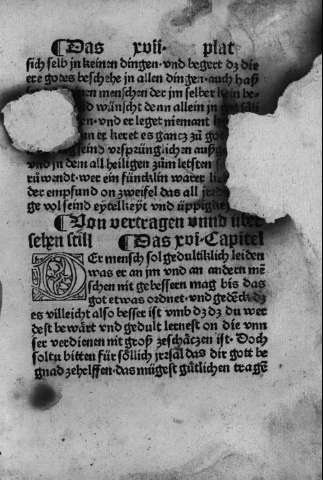 Das xvii. plat
sich selb jn keinen dingen· vnd begert dz die
ere gotes beschehe jn allen dingen· auch haß
menschen der jm selber kein
wünscht denn allein jn
vnd er leget niemant
er keret es gancz zů
vrsprünglichen
vnd jn dem all heiligen zům letsten
růwandt· wer ein füncklin warer
der empfund on zweifel das all
ge vol seind eytelkeyt vnd üppigkeit
Von vertragen vnnd über
sehen Das xvi· Capitel
ER mensch sol gedultiklich leiden
was er an jm vnd an andern mē
schen nit gebessern mag bis das
got etwas ordnet· vnd gedēck dz
es villeicht also besser ist vmb dz dz du wer
dest bewärt vnd gedult lernest on die vnn
ser verdienen nit groß zeschäczen ist· Doch
soltu bitten für söllich jrrsal das dir gott be
gnad zehelffen· das mügest gůtlichen tragē